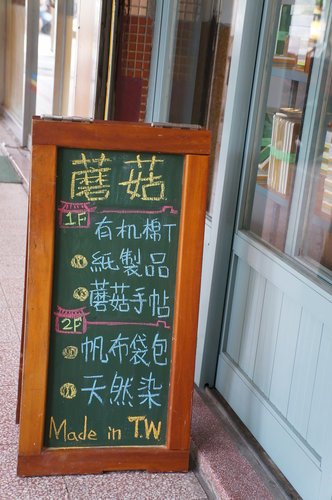 蘑菇
1F
有机棉T
紙製品
蘑菇手帖
2F
帆布袋包
天然染
Made in T.W